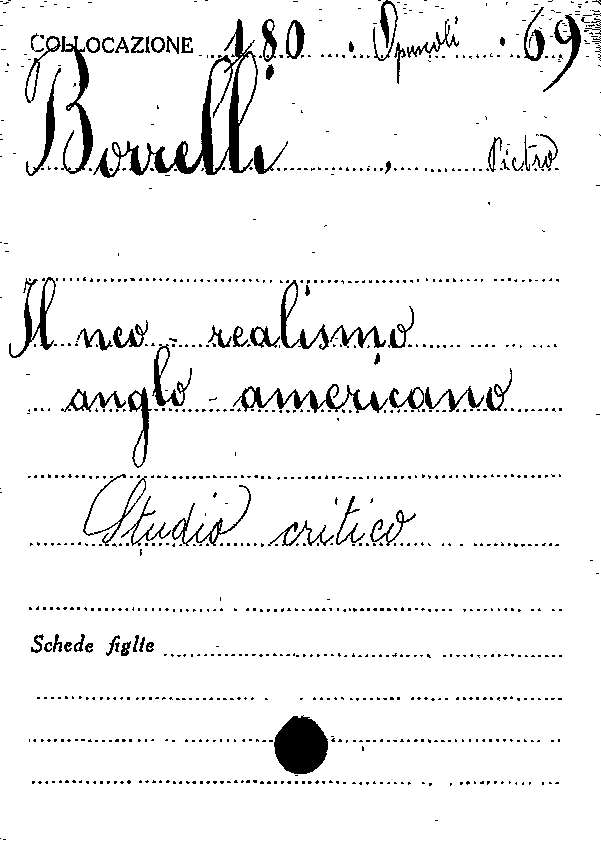 COLLOCAZIONE 180 . Opuscoli . 69
Borrelli , Pietro
Il neo - realismo
anglo - americano
Studio critico
Schede figlie